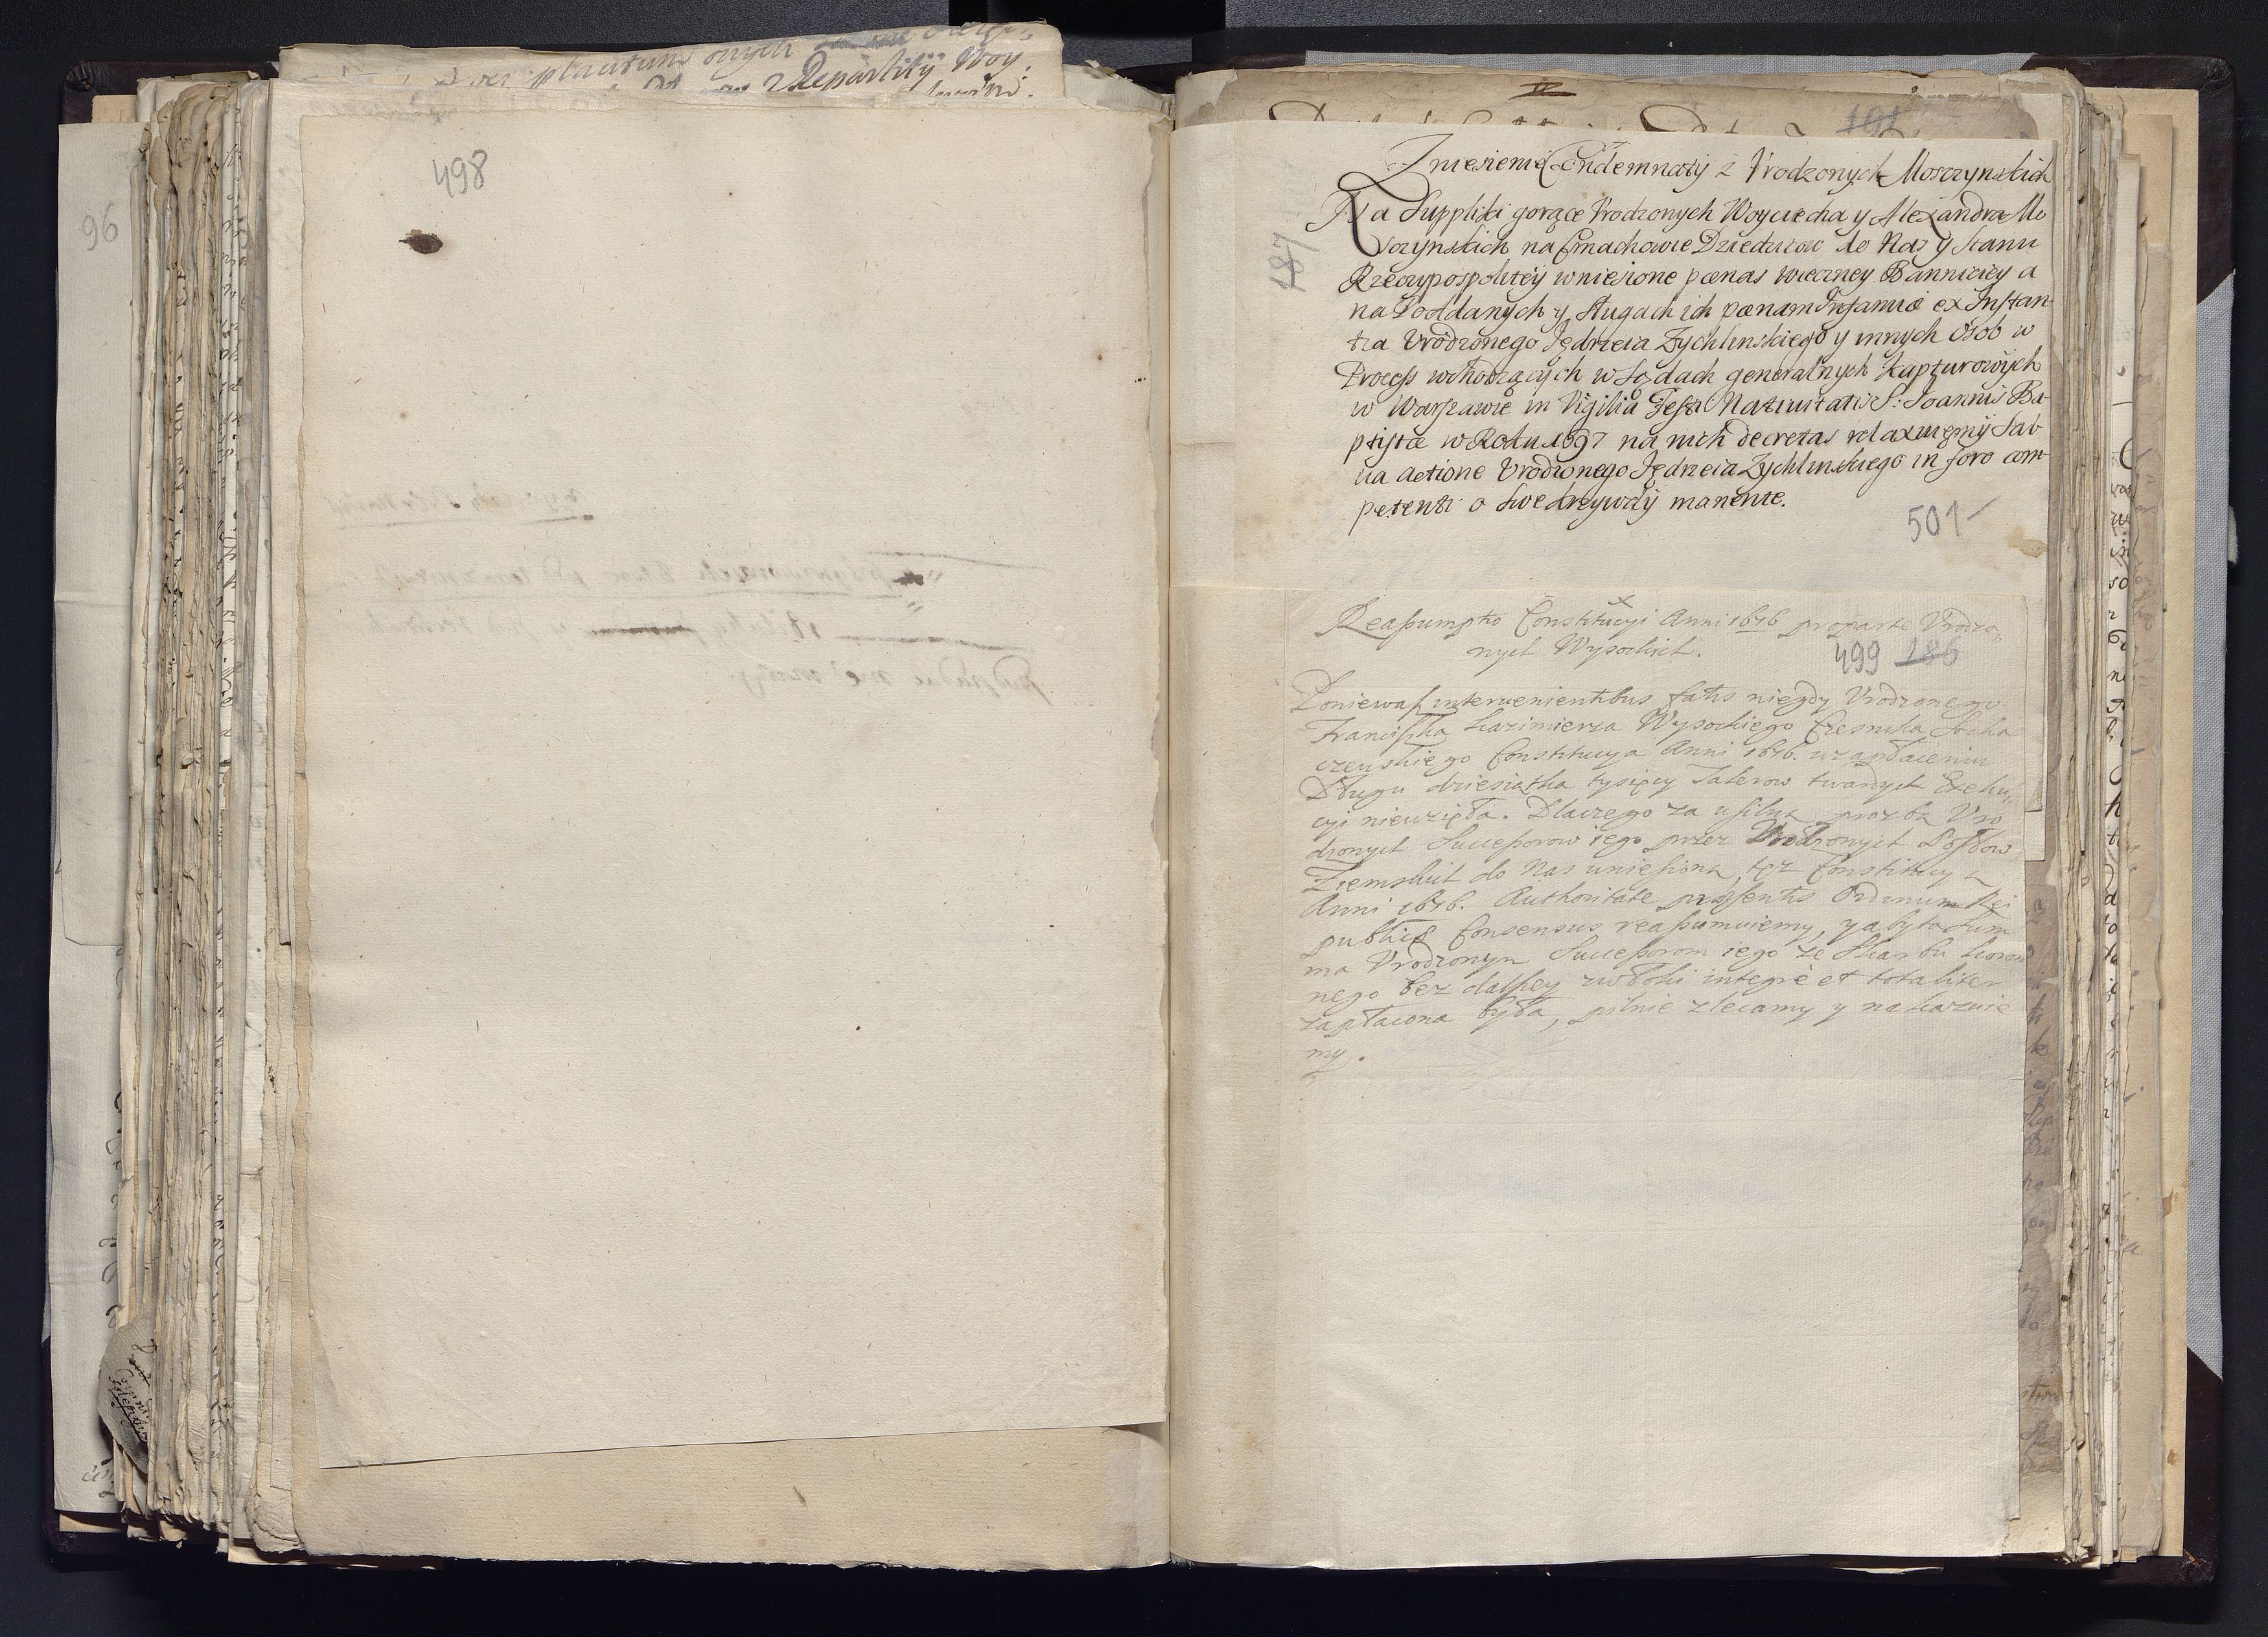 498
96
Repartitÿ Woy.
191
Zniesienie Condemnaty z Vrodzonych Moszczynskich
Na Suppliki gorące Vrodzonych Woyciecha y Alexandra Mo
szczynskich na Dziedzicow do Nas y Stanu
Rzeczypospolitey wniesione pœnas wieczney Bannicÿey a
na Poddanych y sługach ich pœnam Infamiæ ex Instan-
tia Vrodzonego Jędrzeia Zychlinskiego y innych osob w
Process wchodzących w Sądach generalnych kapturowych
w Warszawie in Vigilia Festi Natiuitatis S: Joannis Ba-
ptistæ w Roku 1697 na nich decretas relaxuięmÿ Sal-
ua actione Vrodzonego Jędrzeia Zychlinskiego in foro com-
petenti o swe krzywdÿ manente.
187
501-
Reassumptio Constitucyi Anni 1676 pro parte Vrodzo
nych Wysockich.
499 186
Poniewasz interuenientibus fatis niegdy Vrodzonego
Franciszka Kazimierza Wysockiego Czesnika Socha
czewskiego Constitucya Anni 1676. w zapłaceniu
Długu dziesiątka tysięcy Talerow twardych Exeku„
cyi niewzięła. Dlaczego za usilną prozbą Vro
dzonych Successorow iego przez Vrodzonych Posłow
Ziemskich do Nas wniesioną, tęz Constitucyą
Anni 1676. Authoritate præsentis Ordinum Rei
publicæ Consensus reassumuiemy, y aby ta Sum
ma Vrodzonym Successorom iego ze Skarbu koron
nego bez dalszey zwłoki integrè et totaliter
zapłacona była, pilnie zlecamy y nakazuie
my.